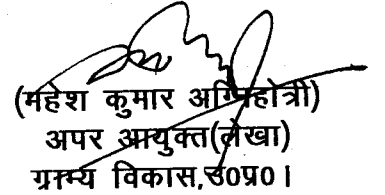 (महेश कुमार अग्निहोत्री)
अपर आयुक्त(लेखा)
ग्राम्य विकास,उ0प्र0।